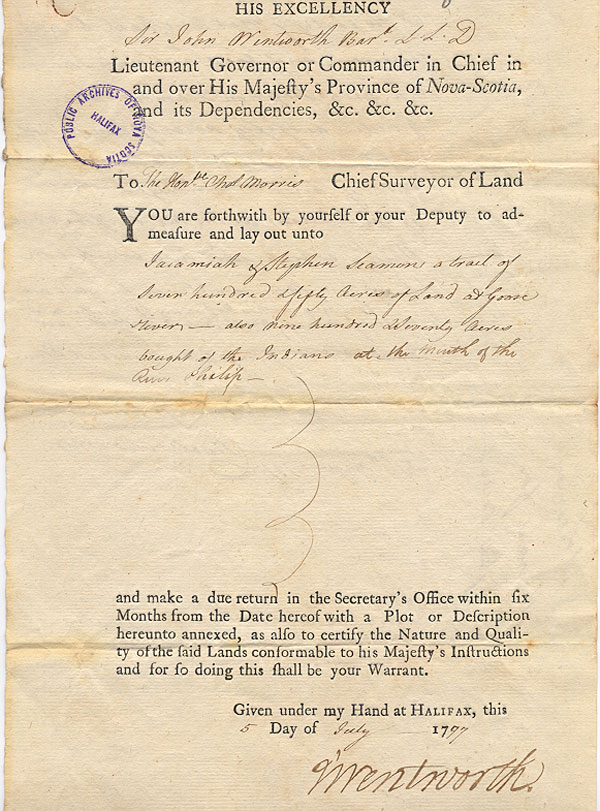 HIS EXCELLENCY
Sir John Wentworth Bart. L L D
Lieutenant Governor or Commander in Chief in
and over His Majeſty's Province of Nova-Scotia,
and its Dependencies, &c. &c. &c.
PUBLIC ARCHIVES OF NOVA SCOTIA
HALIFAX
To The Honble. Chas Morris Chief Surveyor of Land
YOU are forthwith by yourſelf or your Deputy to ad-
meaſure and lay out unto
Jaramiah & Stephen Seamons a tract of
Seven hundred & fifty Acres of Land at Goose
River — also nine hundred & Seventy Acres
bought of the Indians at the mouth of the
River Philip —
and make a due return in the Secretary's Office within ſix
Months from the Date hereof with a Plot or Deſcription
hereunto annexed, as alſo to certify the Nature and Quali-
ty of the ſaid Lands conformable to his Majeſty's Inſtructions
and for ſo doing this ſhall be your Warrant.
Given under my Hand at HALIFAX, this
5 Day of July 1797
J Wentworth.